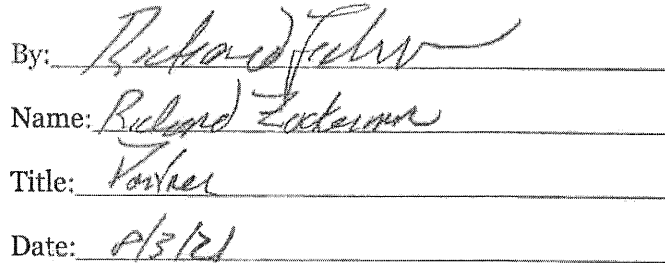 By: Richard
Name: Richard Zuckerman
Title: Partner
Date: 8/3/21